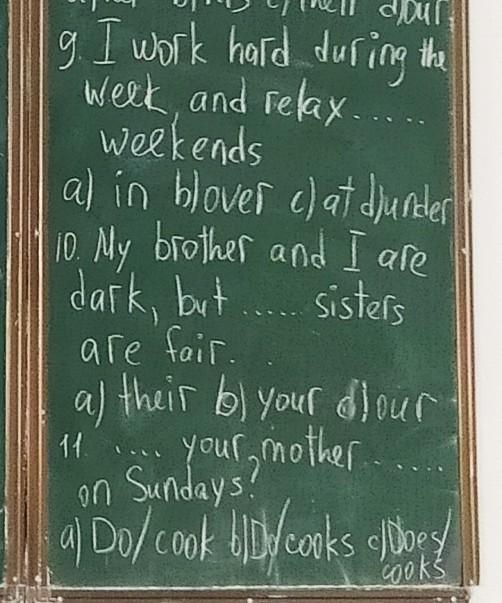 b) his c) their d) our
9. I work hard during the
week, and relax......
weekends
a) in b) over c) at d) under
10. My brother and I are
dark, but ...... sisters
are fair.
a) their b) your d) our
11. .... your mother ......
on Sundays?
a) Do/cook b) Do/cooks c) Does/
cooks